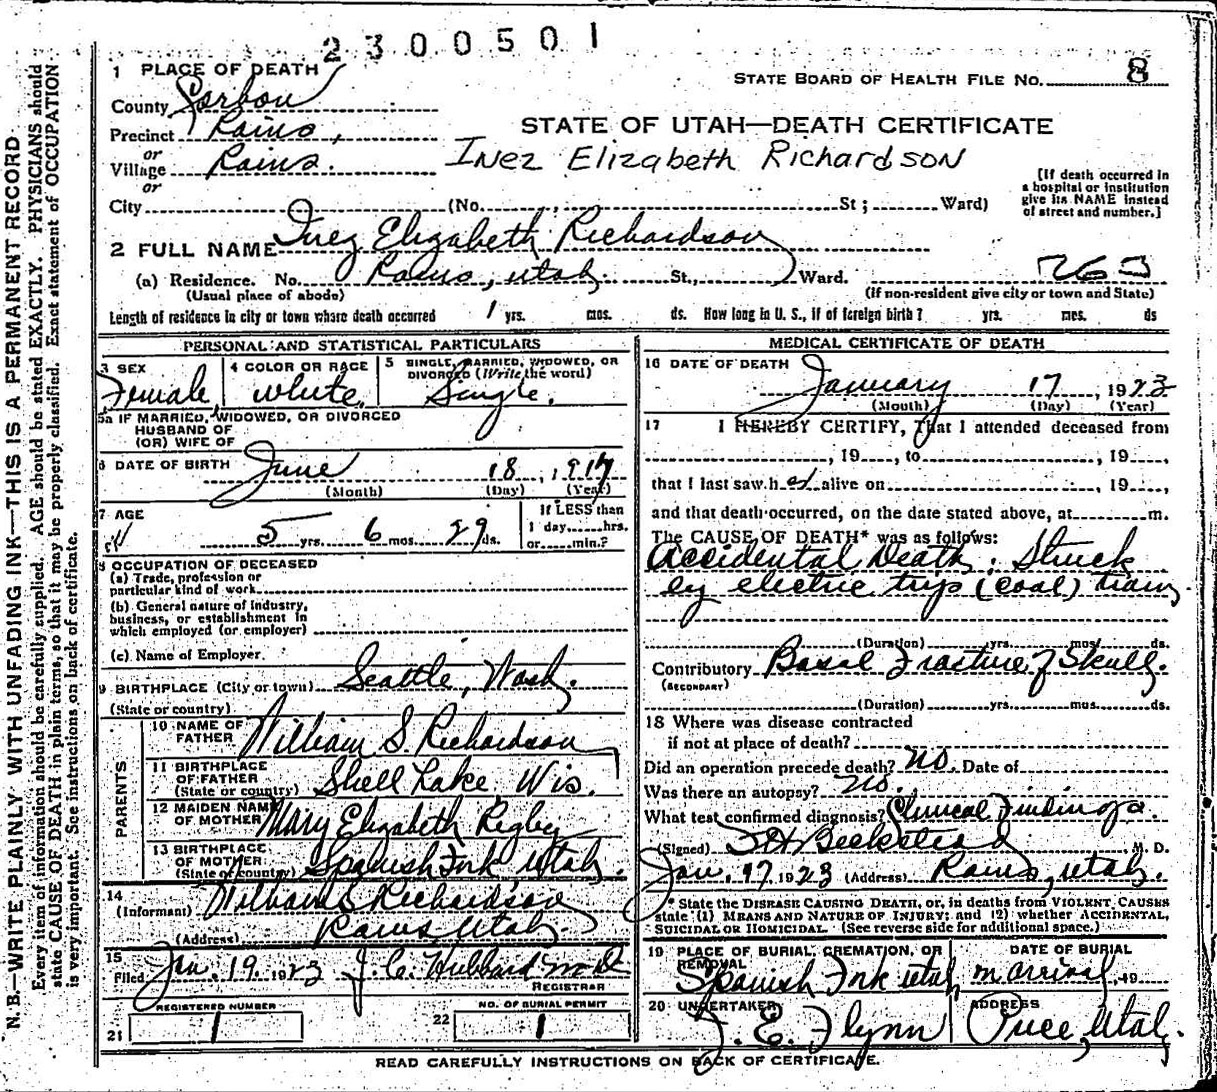 2300501
STATE BOARD OF HEALTH FILE NO. 8
1 PLACE OF DEATH
County Carbon
Precinct Rains,
or
Village Rains.
or
STATE OF UTAH—DEATH CERTIFICATE
Inez Elizabeth Richardson
[If death occurred in
a hospital or institution
give its NAME instead
of street and number.]
City (No. , St; Ward)
2 FULL NAME Inez Elizabeth Richardson
(a) Residence. No. Rains, Utah. St., Ward. 263
(Usual place of abode) (If non-resident give city or town and State)
Length of residence in city or town where death occurred 1 yrs. mos. ds. How long in U. S., if of foreign birth? yrs. mos. ds
PERSONAL AND STATISTICAL PARTICULARS
3 SEX Female
4 COLOR OR RACE white.
5 SINGLE, MARRIED, WIDOWED, OR
DIVORCED (Write the word) Single.
5a IF MARRIED, WIDOWED, OR DIVORCED
HUSBAND OF
(OR) WIFE OF
6 DATE OF BIRTH June 18, 1917
(Month) (Day) (Year)
7 AGE 5 yrs. 6 mos. 29 ds.
If LESS than
1 day, hrs.
or min.?
8 OCCUPATION OF DECEASED
(a) Trade, profession or
particular kind of work
(b) General nature of industry,
business, or establishment in
which employed (or employer)
(c) Name of Employer
9 BIRTHPLACE (City or town) Seattle, Wash.
(State or country)
PARENTS
10 NAME OF
FATHER William S. Richardson
11 BIRTHPLACE
OF FATHER
(State or country) Shell Lake, Wis.
12 MAIDEN NAME
OF MOTHER Mary Elizabeth Rigby
13 BIRTHPLACE
OF MOTHER
(State or country) Spanish Fork Utah.
14
(Informant) William S Richardson
(Address) Rains, Utah.
15
Filed Jan. 19 1923 J. C. Hubbard M D
REGISTRAR
REGISTERED NUMBER
21 1
NO. OF BURIAL PERMIT
22 1
MEDICAL CERTIFICATE OF DEATH
16 DATE OF DEATH
January 17, 1923
(Month) (Day) (Year)
17 I HEREBY CERTIFY, That I attended deceased from
, 19 , to , 19 ,
that I last saw her alive on , 19 ,
and that death occurred, on the date stated above, at m.
The CAUSE OF DEATH* was as follows:
Accidental Death. Struck
by electric trip (coal) tram.
(Duration) yrs. mos. ds.
Contributory Basal Fracture of Skull.
(SECONDARY)
(Duration) yrs. mos. ds.
18 Where was disease contracted
if not at place of death?
Did an operation precede death? No. Date of
Was there an autopsy? No.
What test confirmed diagnosis? Clinical Findings.
(Signed) Beckstead M. D.
Jan. 17 1923 (Address) Rains, Utah.
* State the DISEASE CAUSING DEATH, or, in deaths from VIOLENT CAUSES
state (1) MEANS AND NATURE OF INJURY; and (2) whether ACCIDENTAL,
SUICIDAL OR HOMICIDAL. (See reverse side for additional space.)
19 PLACE OF BURIAL, CREMATION, OR
REMOVAL
Spanish Fork Utah
DATE OF BURIAL
on arrival, 19
20 UNDERTAKER
J. E. Flynn
ADDRESS
Price, Utah.
READ CAREFULLY INSTRUCTIONS ON BACK OF CERTIFICATE.
N. B.—WRITE PLAINLY WITH UNFADING INK—THIS IS A PERMANENT RECORD
Every item of information should be carefully supplied. AGE should be stated EXACTLY. PHYSICIANS should
state CAUSE OF DEATH in plain terms, so that it may be properly classified. Exact statement of OCCUPATION
is very important. See instructions on back of certificate.